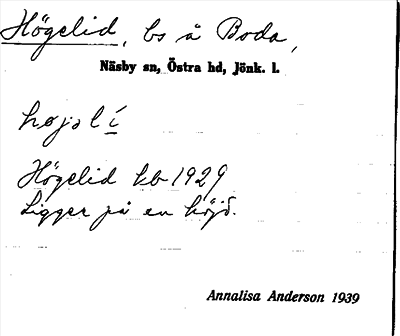 Högelid, bs å Boda,
Näsby sn, Östra hd, Jönk. l.
højəlí
Högelid kb 1929
Ligger på en höjd.
Annalisa Anderson 1939